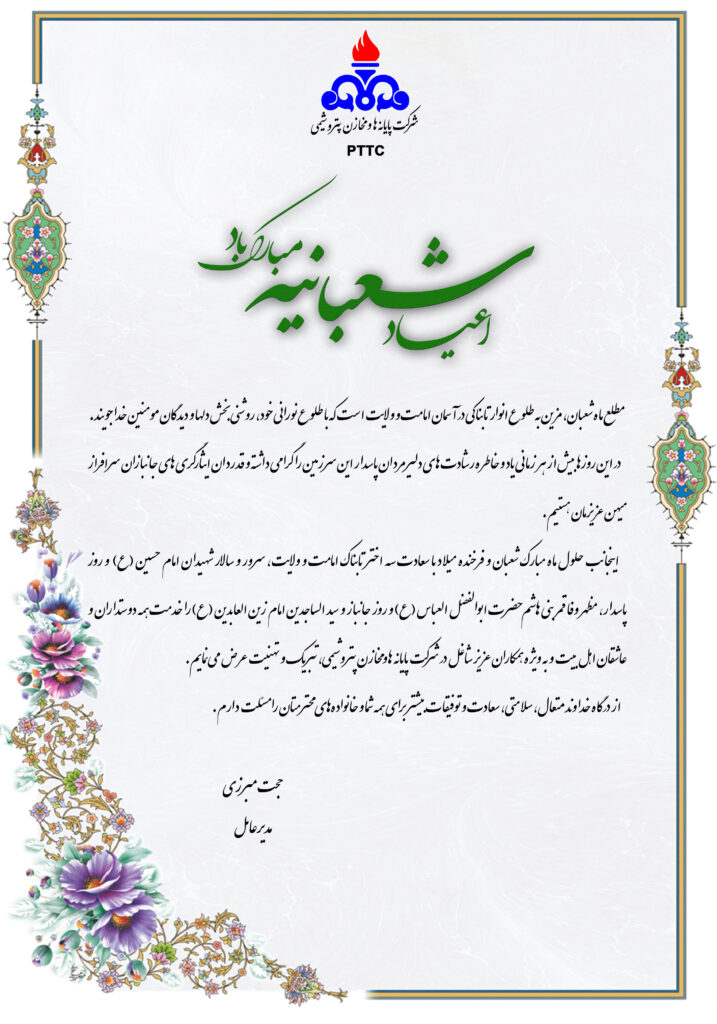 شرکت پایانه ها و مخازن پتروشیمی
PTTC
اعیاد شعبانیه مبارک باد
مطلع ماه شعبان، مزین به طلوع انوار تابناکی در آسمان امامت و ولایت است که با طلوع نورانی خود، روشنی بخش دلها و دیدگان مومنین خداجویند.
در این روزها بیش از هر زمانی یاد و خاطره رشادت های دلیرمردان پاسدار این سرزمین را گرامی داشته و قدردان ایثارگری های جانبازان سرافراز
میهن عزیزمان هستیم.
اینجانب حلول ماه مبارک شعبان و فرخنده میلاد با سعادت سه اختر تابناک امامت و ولایت، سرور و سالار شهیدان امام حسین (ع) و روز
پاسدار، مظهر وفا قمر بنی هاشم حضرت ابوالفضل العباس (ع) و روز جانباز و سید الساجدین امام زین العابدین (ع) را خدمت همه دوستداران و
عاشقان اهل بیت و به ویژه همکاران عزیز شاغل در شرکت پایانه ها و مخازن پتروشیمی، تبریک و تهنیت عرض می نمایم.
از درگاه خداوند متعال، سلامتی، سعادت و توفیقات بیشتر برای همه شما و خانواده های محترمتان را مسئلت دارم.
حجت میرزی
مدیرعامل